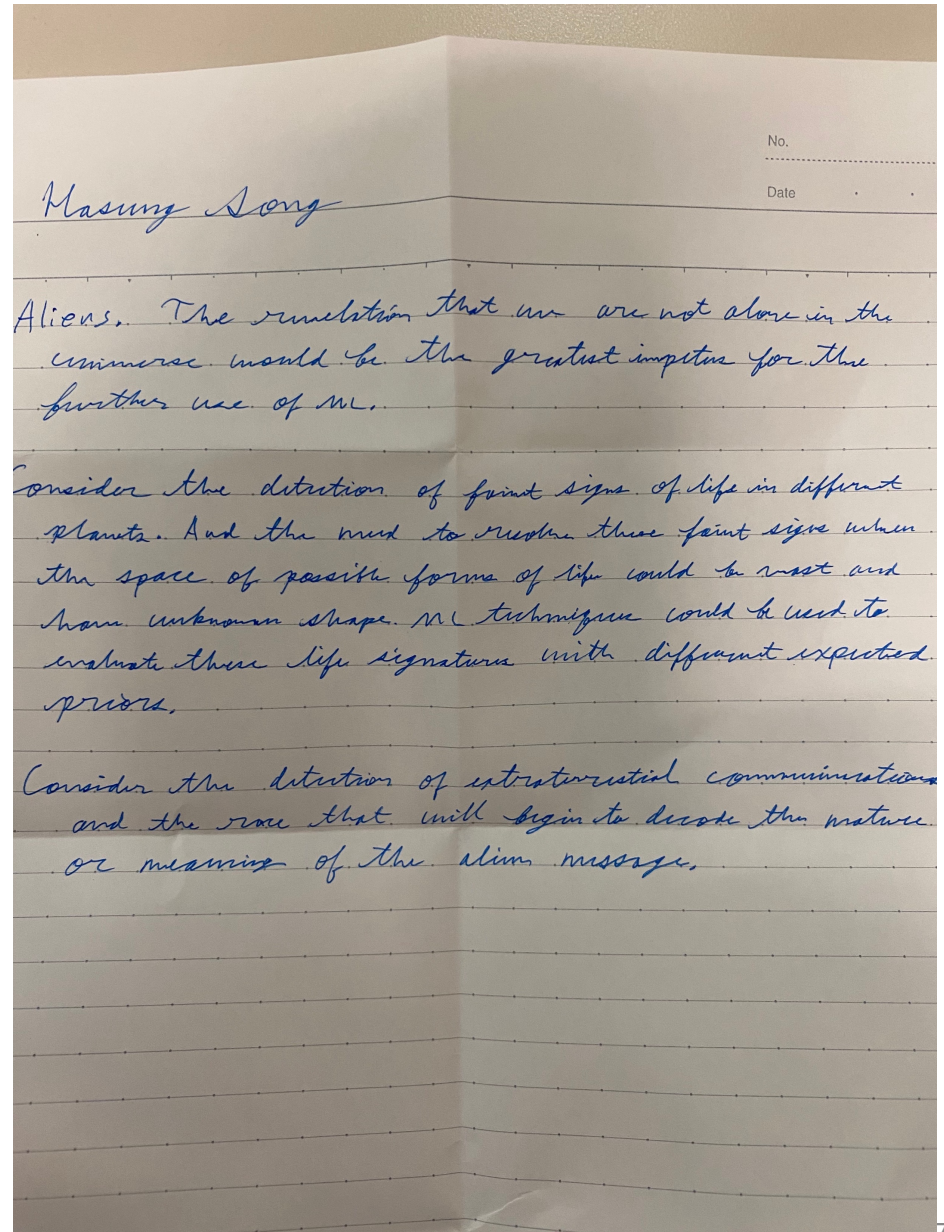 No.
Date
Hasung Song
Aliens. The revelation that we are not alone in the
universe would be the greatest impetus for the
further use of ML.
Consider the detection of faint signs of life in different
planets. And the need to resolve these faint signs when
the space of possible forms of life could be vast and
have unknown shape. ML techniques could be used to
evaluate these life signatures with different expected
priors.
Consider the detection of extraterrestial communications
and the race that will begin to decode the nature
or meaning of the alien message.